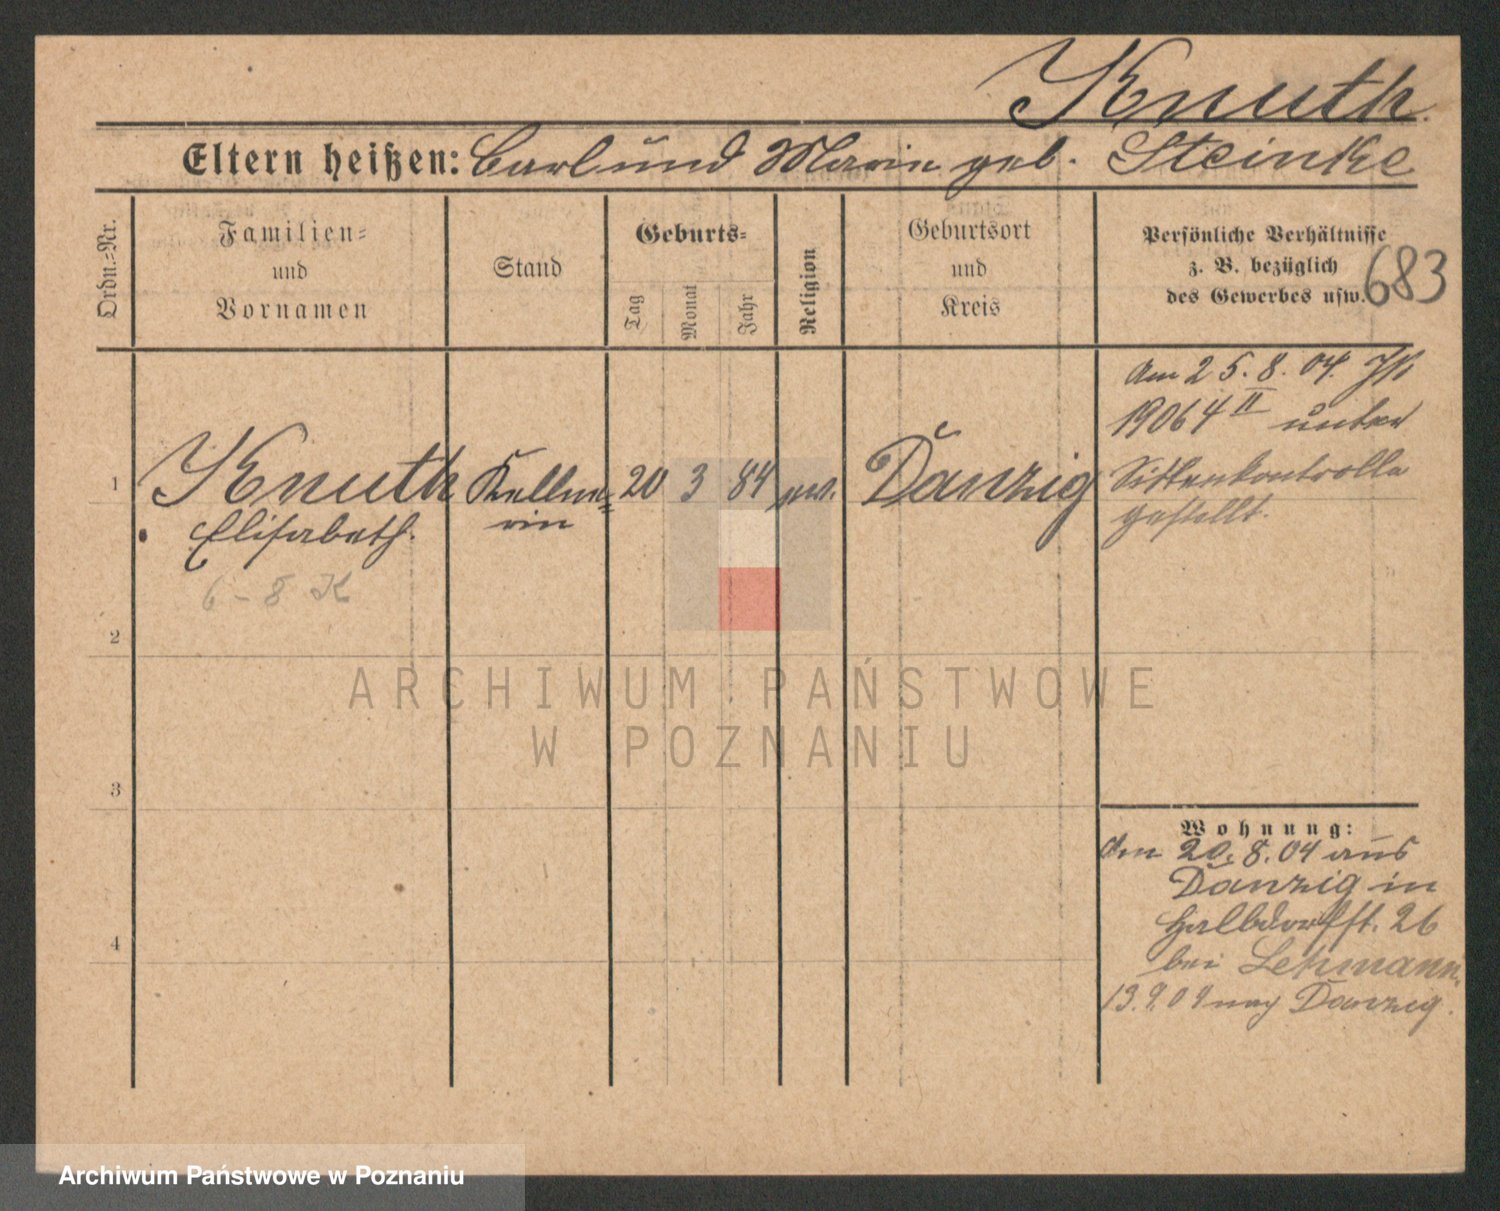 Knuth.
Eltern heißen: Carl und Marie geb. Steinke
Ordn.-Nr.
Familien-
und
Vornamen
Stand
Geburts-
Tag
Monat
Jahr
Religion
Geburtsort
und
Kreis
Persönliche Verhältnisse
z. B. bezüglich
des Gewerbes usw.
683
1
Knuth
Elisabeth.
6-8 K
Kellne-
rin
20
3
84
ev.
Danzig
Am 25.8.04.
19064 II unter
Sittenkontrolle
gestellt.
2
3
4
Wohnung:
den 20.8.04 aus
Danzig in
Halbdorfst. 26
bei Lehmann.
13.9.04 nach Danzig.
ARCHIWUM PAŃSTWOWE
W POZNANIU
Archiwum Państwowe w Poznaniu